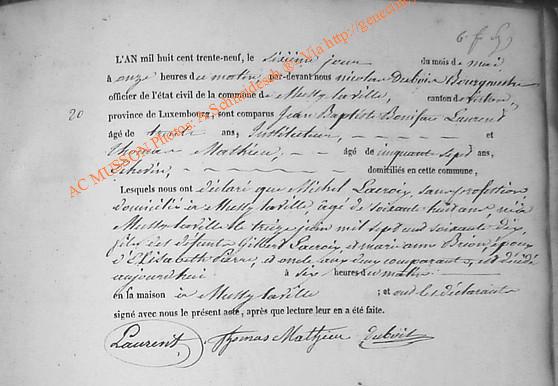 6. f. G
L'AN mil huit cent trente-neuf, le sixième jour du mois de mai
à onze heures du matin, par-devant nous nicolas Dubois Bourgmestre
officier de l'état civil de la commune de Mussy laville, canton de Virton,
20 province de Luxembourg, sont comparus Jean Baptiste Boniface Laurent
âgé de trente ans, Instituteur, et
Thomas Mathieu, âgé de cinquante sept ans,
domiciliés en cette commune,
Lesquels nous ont déclaré que Michel Lacroix, sans profession
domicilié à Mussy laville, âgé de soixante huit ans, né à
Mussy laville le treize juin mil sept cent soixante dix
fils des défunts Gilbert Lacroix et mariane Brion, époux
d'Elisabeth, et oncle aux deux comparants, est décédé
aujourd'hui à six heures du matin
en sa maison à Mussy laville ; et ont les déclarants
signé avec nous le présent acte, après que lecture leur en a été faite.
Laurent Thomas Mathieu Dubois
AC MUSSON Photos: A. Schmidesch ® Via http://genecine